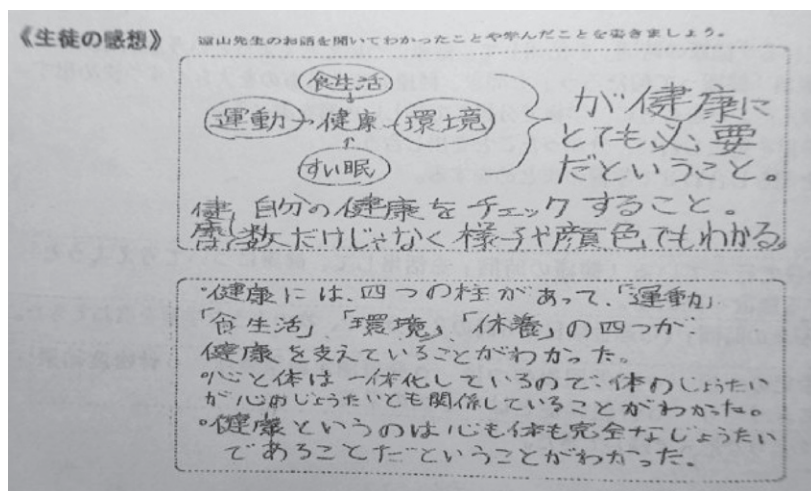 《生徒の感想》 遠山先生のお話を聞いてわかったことや学んだことを書きましょう。
食生活
運動→健康←環境
すい眠
が健康に
とても必要
だということ。
健康 自分の健康をチェックすること。
数だけじゃなく様子や顔色でもわかる。
・健康には、四つの柱があって、「運動」
「食生活」、「環境」、「休養」の四つが
健康を支えていることがわかった。
・心と体は一体化しているので、体のじょうたい
が心のじょうたいとも関係していることがわかった。
・健康というのは心も体も完全なじょうたい
であることだということがわかった。